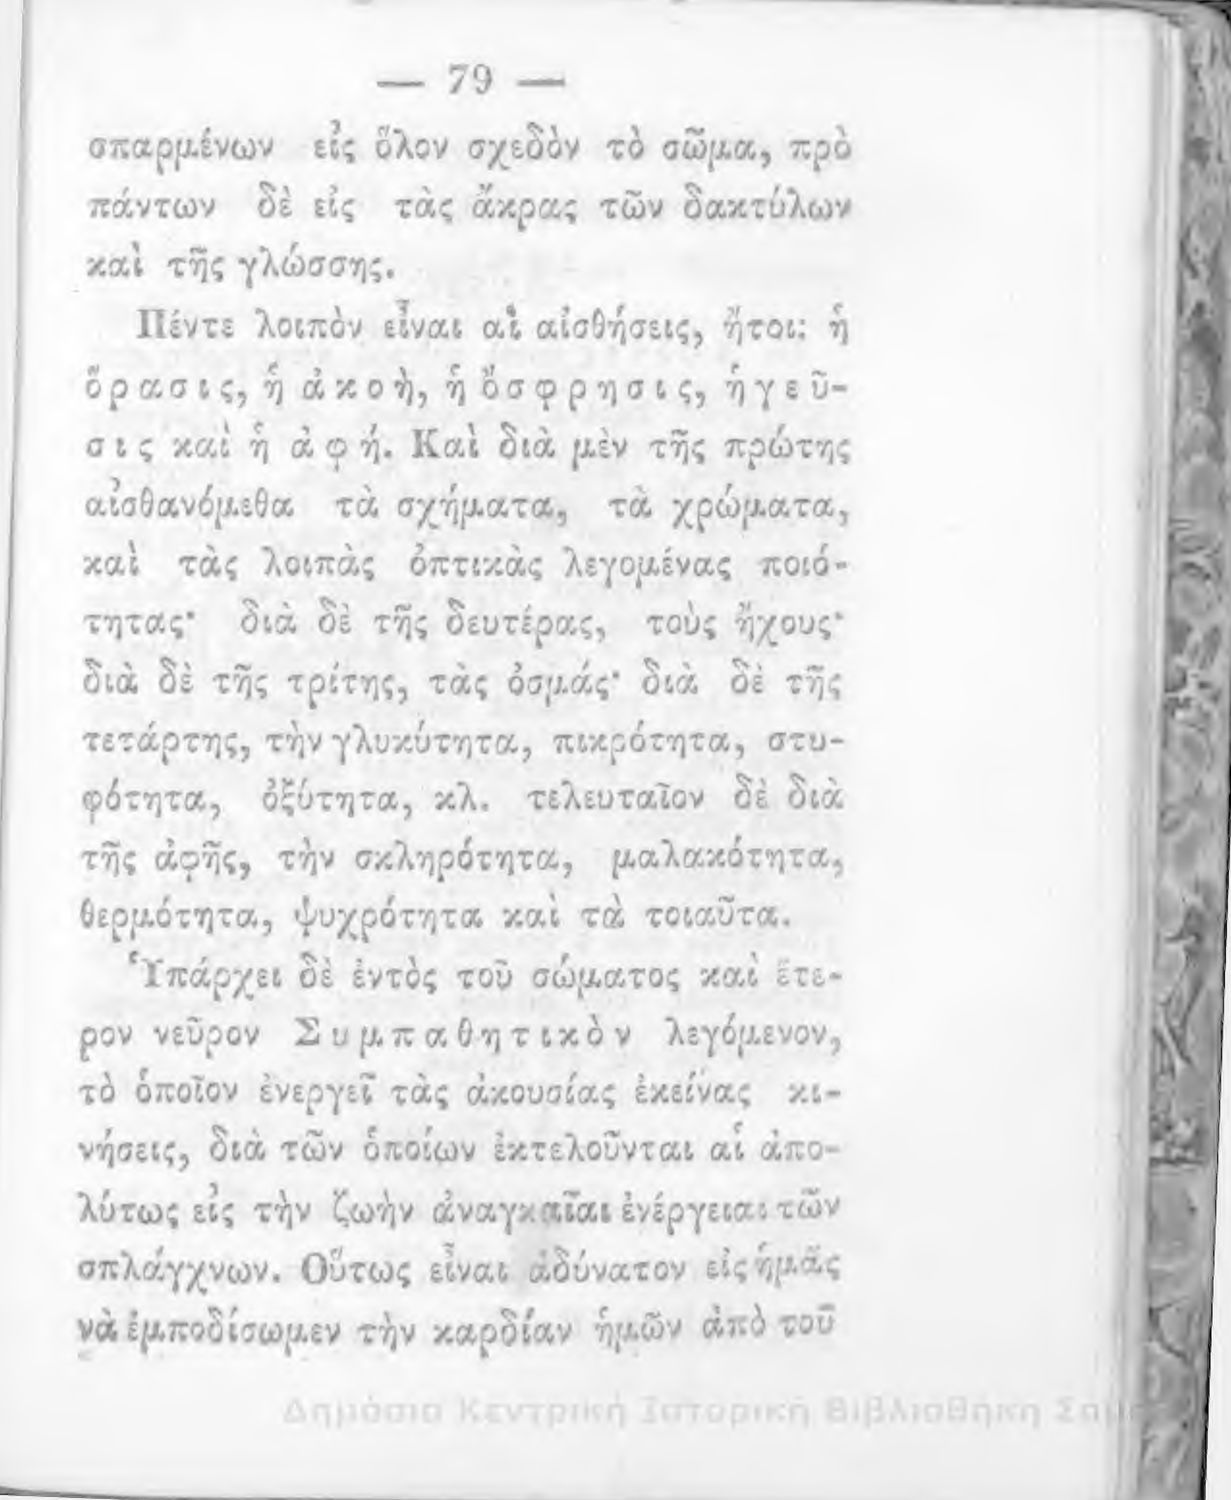 — 79 —
σπαρμένων εἰς ὅλον σχεδὸν τὸ σῶμα, πρὸ
πάντων δὲ εἰς τὰς ἄκρας τῶν δακτύλων
καὶ τῆς γλώσσης.
Πέντε λοιπὸν εἶναι αἱ αἰσθήσεις, ἤτοι: ἡ
ὅρασις, ἡ ἀκοὴ, ἡ ὄσφρησις, ἡ γεῦ-
σις καὶ ἡ ἀφή. Καὶ διὰ μὲν τῆς πρώτης
αἰσθανόμεθα τὰ σχήματα, τὰ χρώματα,
καὶ τὰς λοιπὰς ὀπτικὰς λεγομένας ποιό-
τητας· διὰ δὲ τῆς δευτέρας, τοὺς ἤχους·
διὰ δὲ τῆς τρίτης, τὰς ὀσμάς· διὰ δὲ τῆς
τετάρτης, τὴν γλυκύτητα, πικρότητα, στυ-
φότητα, ὀξύτητα, κλ. τελευταῖον δὲ διὰ
τῆς ἁφῆς, τὴν σκληρότητα, μαλακότητα,
θερμότητα, ψυχρότητα καὶ τὰ τοιαῦτα.
Ὑπάρχει δὲ ἐντὸς τοῦ σώματος καὶ ἕτε-
ρον νεῦρον Συμπαθητικὸν λεγόμενον,
τὸ ὁποῖον ἐνεργεῖ τὰς ἀκουσίας ἐκείνας κι-
νήσεις, διὰ τῶν ὁποίων ἐκτελοῦνται αἱ ἀπο-
λύτως εἰς τὴν ζωὴν ἀναγκαῖαι ἐνέργειαι τῶν
σπλάγχνων. Οὕτως εἶναι ἀδύνατον εἰς ἡμᾶς
νὰ ἐμποδίσωμεν τὴν καρδίαν ἡμῶν ἀπὸ τοῦ
Δημόσια Κεντρική Ιστορική Βιβλιοθήκη